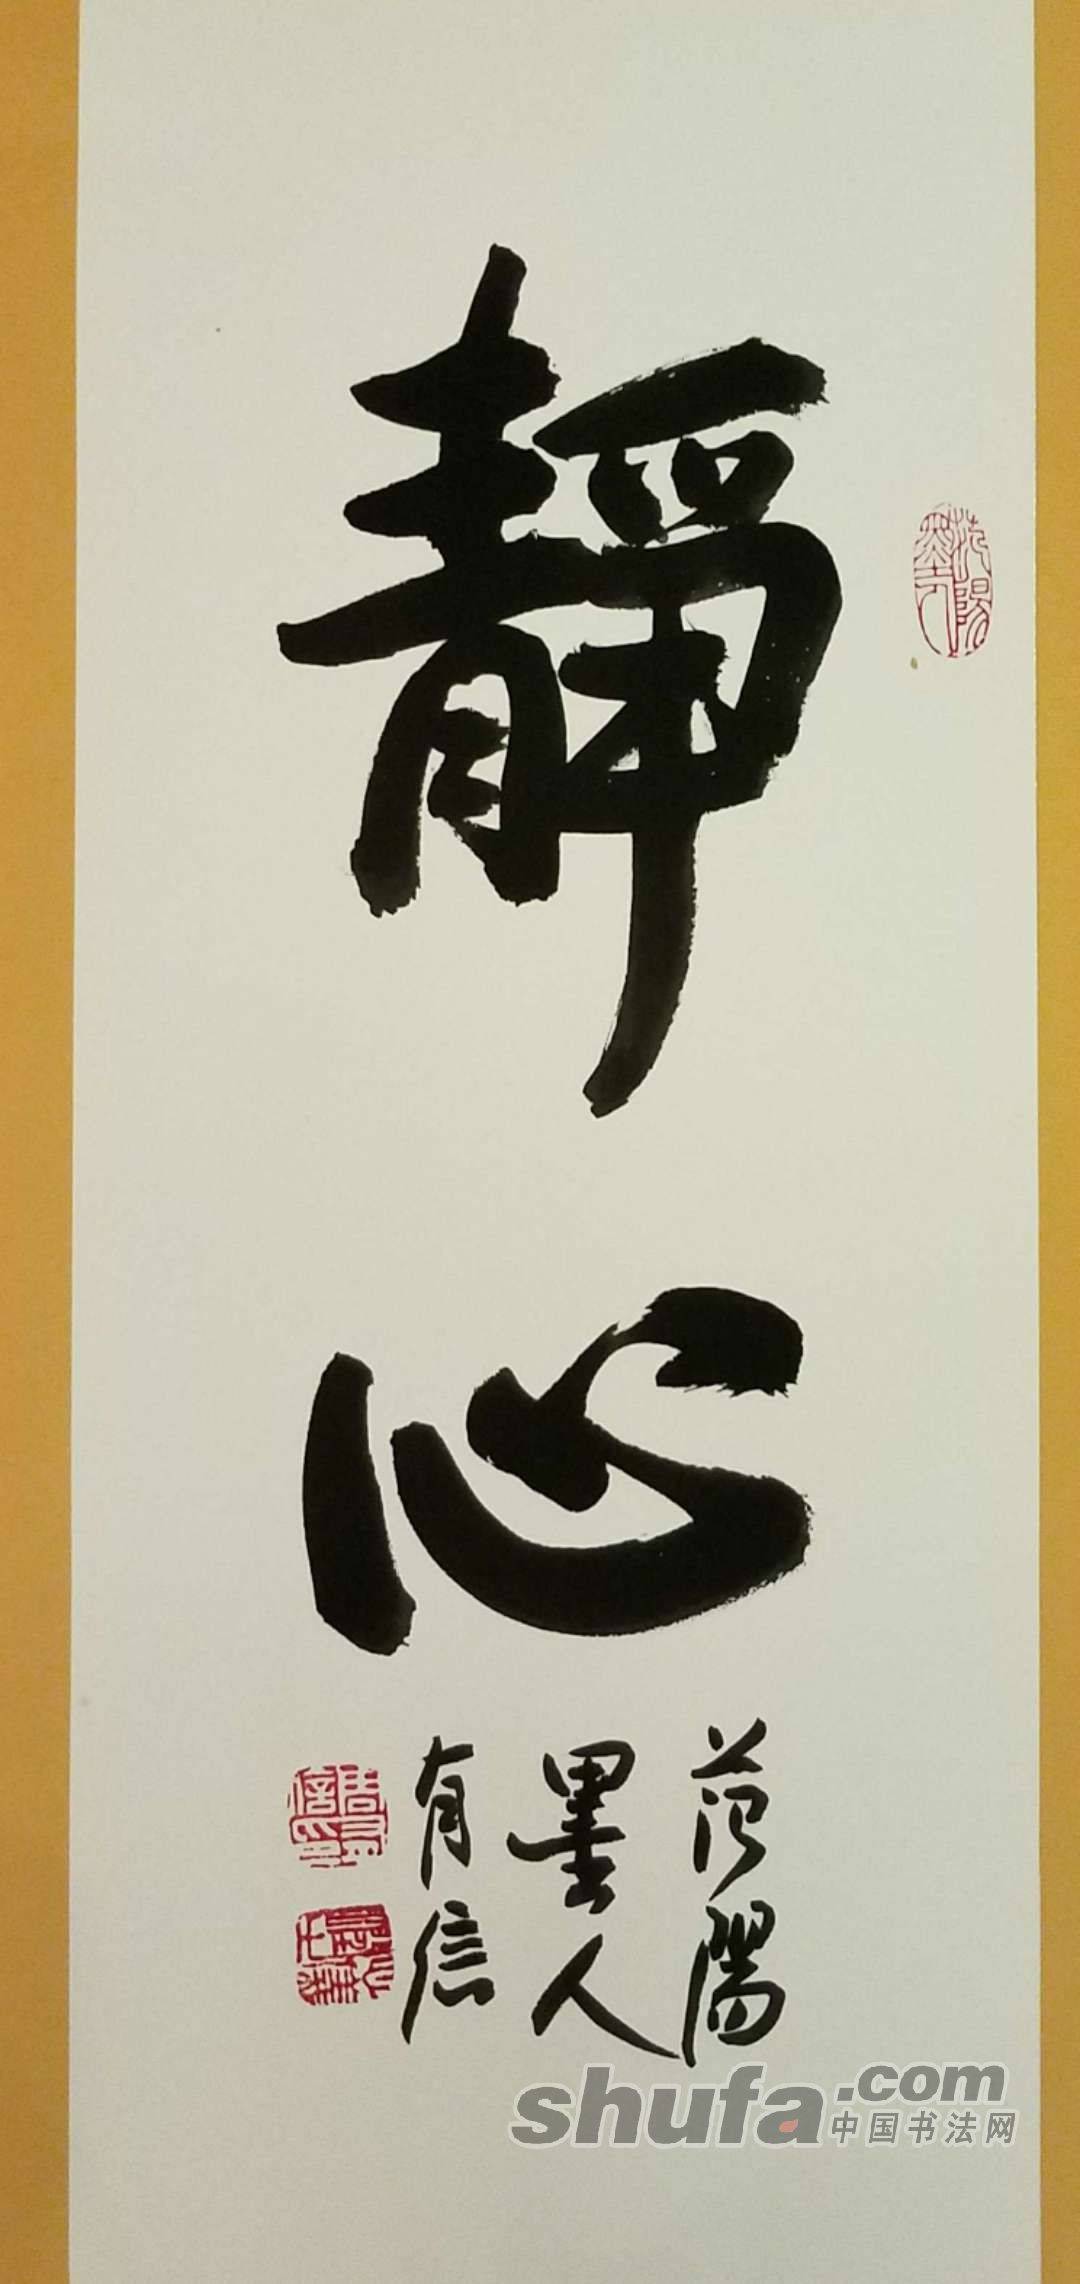 靜心
范陽
墨人
有信
范陽墨人
shufa.com
中国书法网